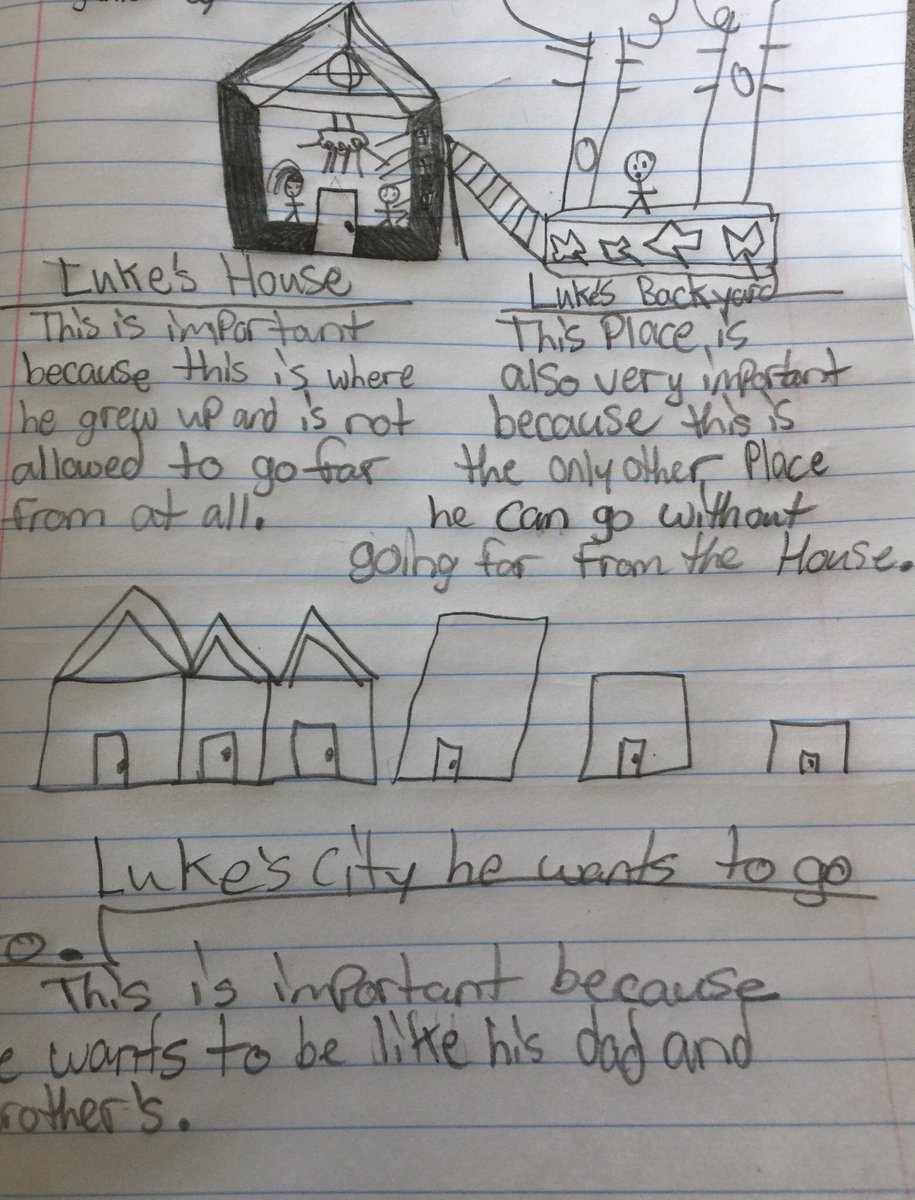 Luke's House
This is important
because this is where
he grew up and is not
allowed to go far
from at all.
Luke's Backyard
This Place is
also very important
because this is
the only other Place
he can go without
going far from the House.
Luke's city he wants to go
o.
This is important because
e wants to be like his dad and
rother's.